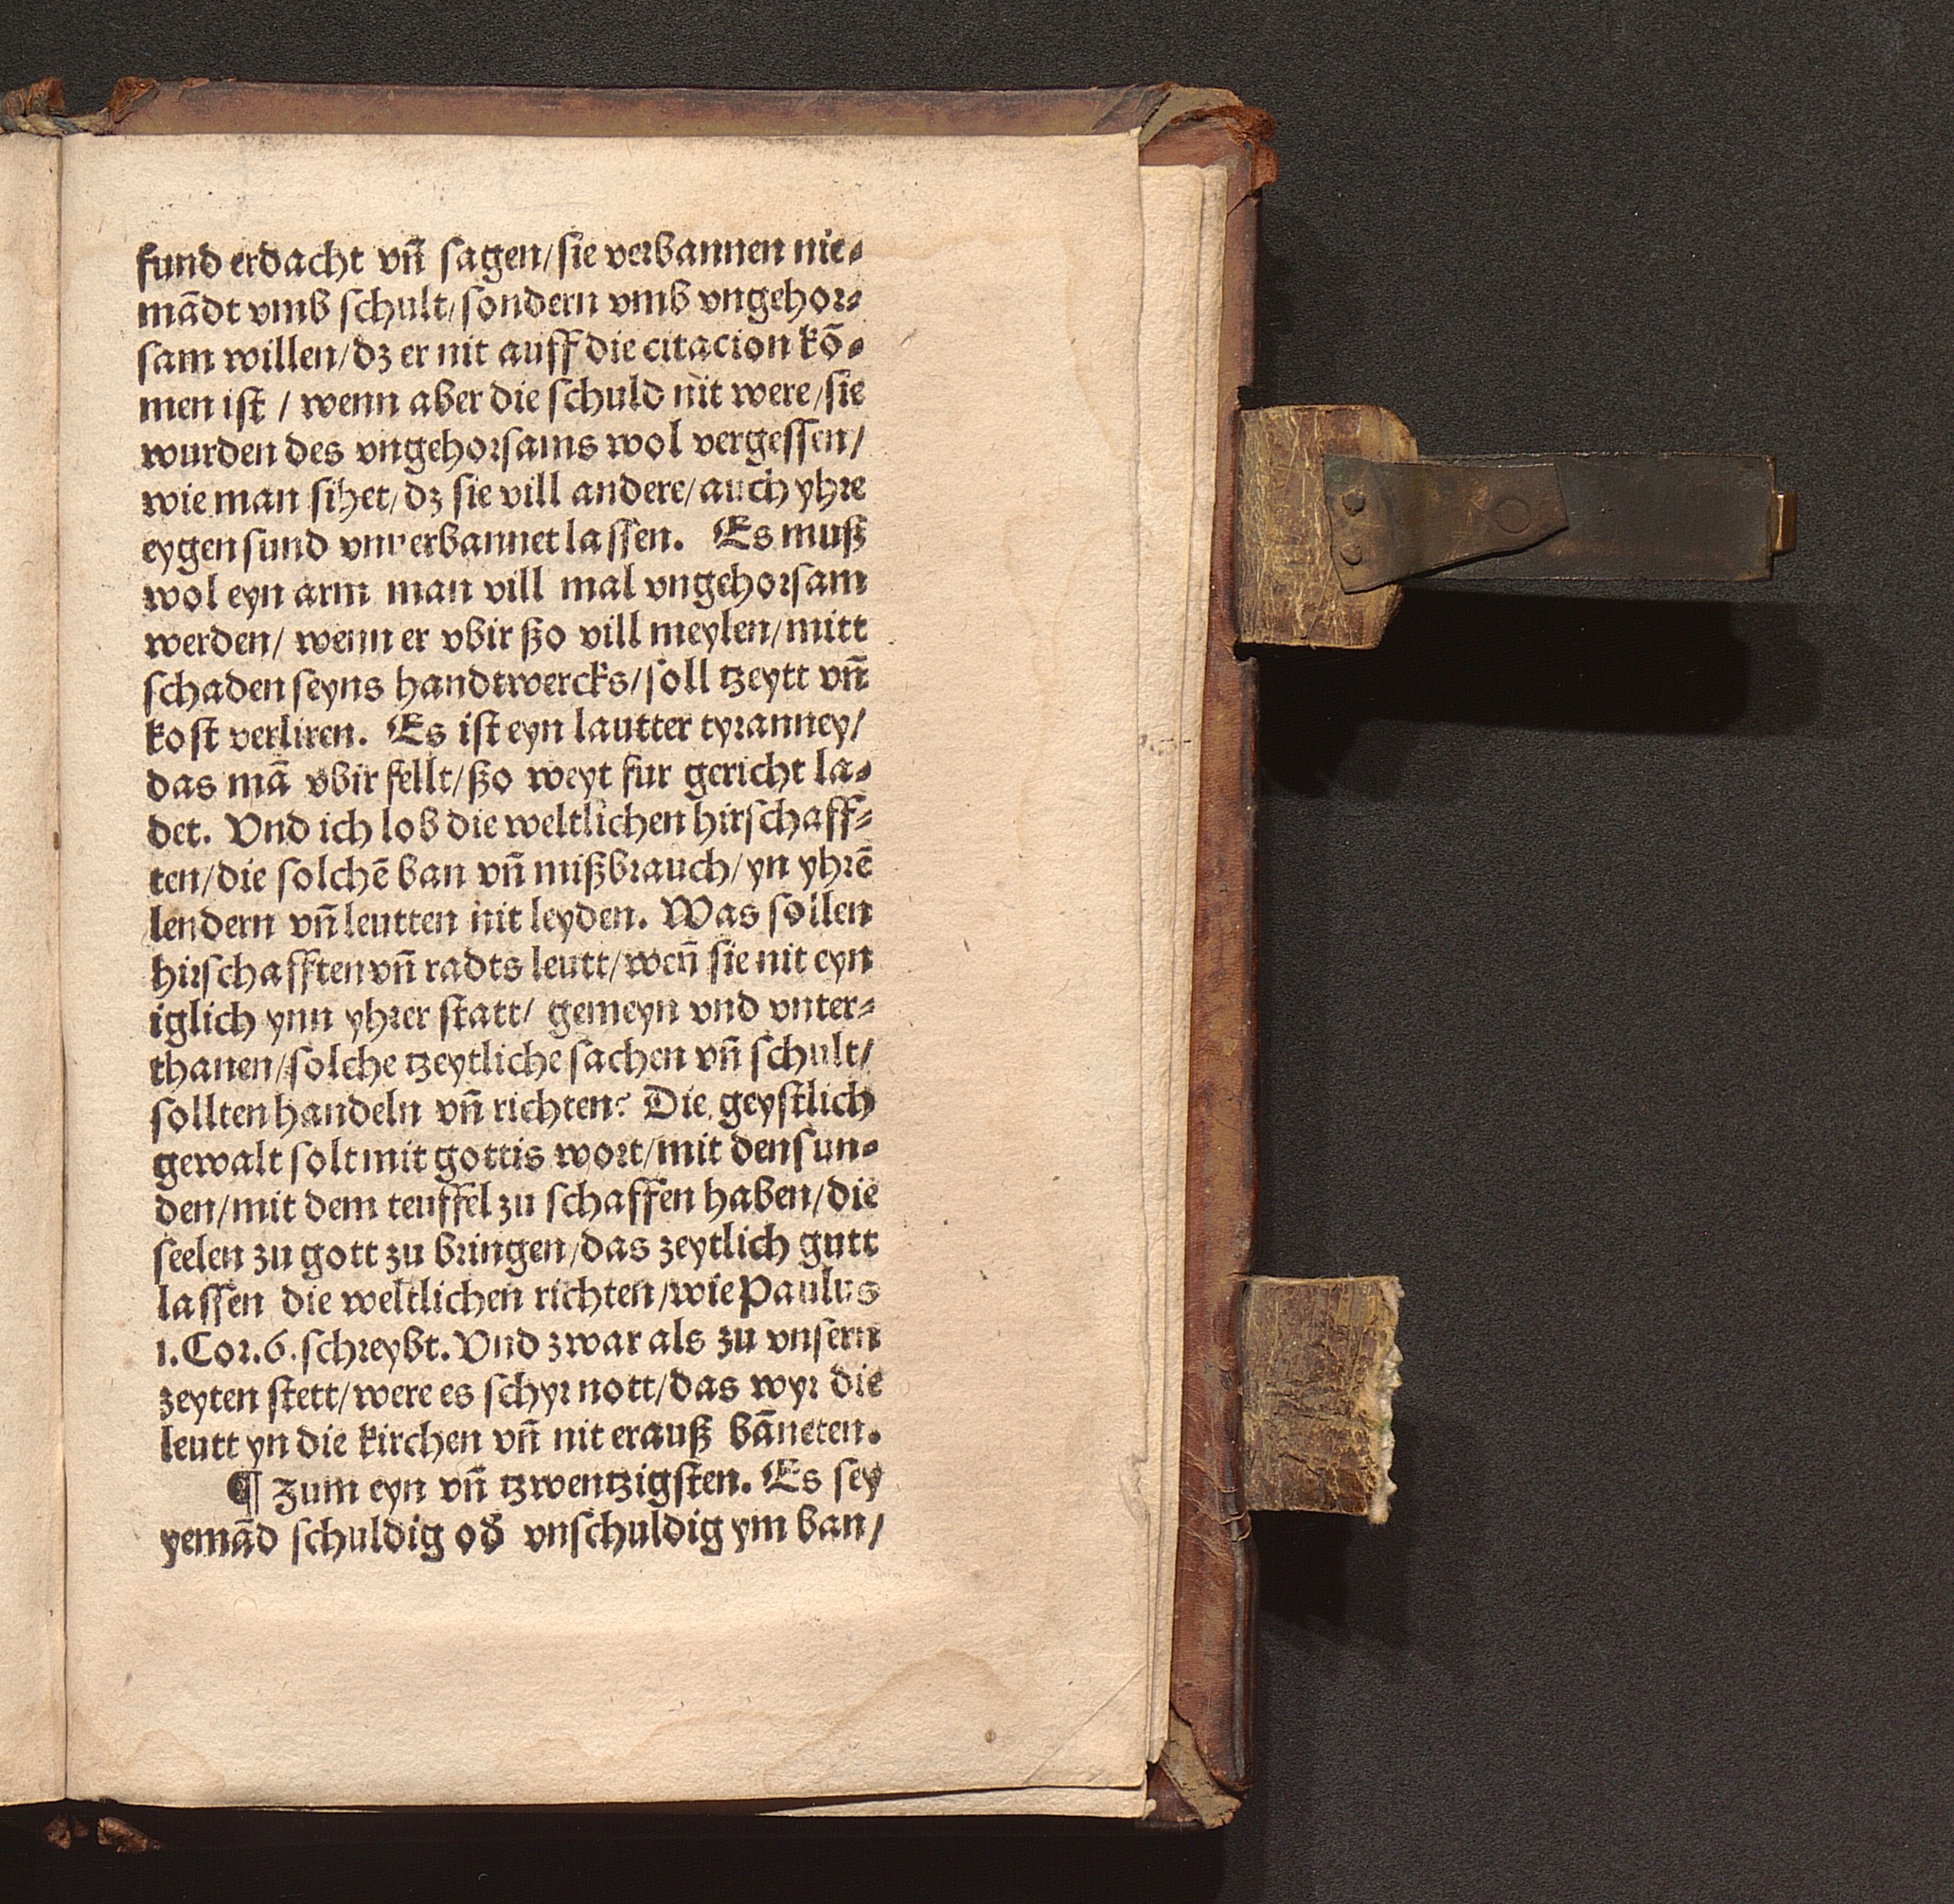 fund erdacht vn̄ sagen/sie verbannen nie-
mādt vmb schult/sondern vmb vngehor-
sam willen/dz er nit auff die citacion kō-
men ist / wenn aber die schuld nit were/sie
wurden des vngehorsams wol vergessen/
wie man sihet/dz sie vill andere/auch yhre
eygen sund vnverbannet lassen. Es muß
wol eyn arm man vill mal vngehorsam
werden/ wenn er vbir ßo vill meylen/mitt
schaden seyns handtwercks/soll tzeytt vn̄
kost verliren. Es ist eyn lautter tyranney/
das mā vbir fellt/ßo weyt fur gericht la-
det. Vnd ich lob die weltlichen hirschaff-
ten/die solchē ban vn̄ mißbrauch/yn yhrē
lendern vn̄ leutten nit leyden. Was sollen
hirschafften vn̄ radts leutt/wen̄ sie nit eyn
iglich ynn yhrer statt/ gemeyn vnd vnter-
thanen/solche tzeytliche sachen vn̄ schult/
sollten handeln vn̄ richten? Die geystlich
gewalt solt mit gottis wort/mit den sun-
den/mit dem teuffel zu schaffen haben/die
seelen zu gott zu bringen/das zeytlich gutt
lassen die weltlichen richten/wie Paulus
1.Cor.6.schreybt. Vnd zwar als zu vnsern
zeyten stett/were es schyr nott/das wyr die
leutt yn die kirchen vn̄ nit erauß bāneten.
¶ Zum eyn vn̄ tzwentzigsten. Es sey
yemād schuldig od̕ vnschuldig ym ban/